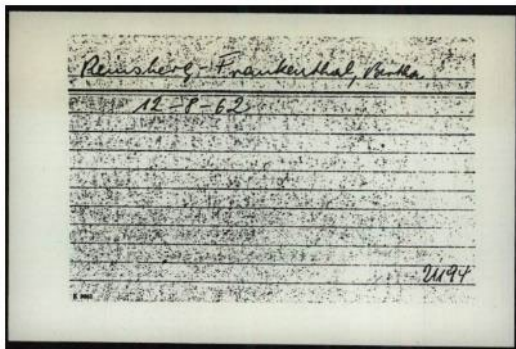 Reinsberg-Frankenthal, Bertha
12-8-62
21194